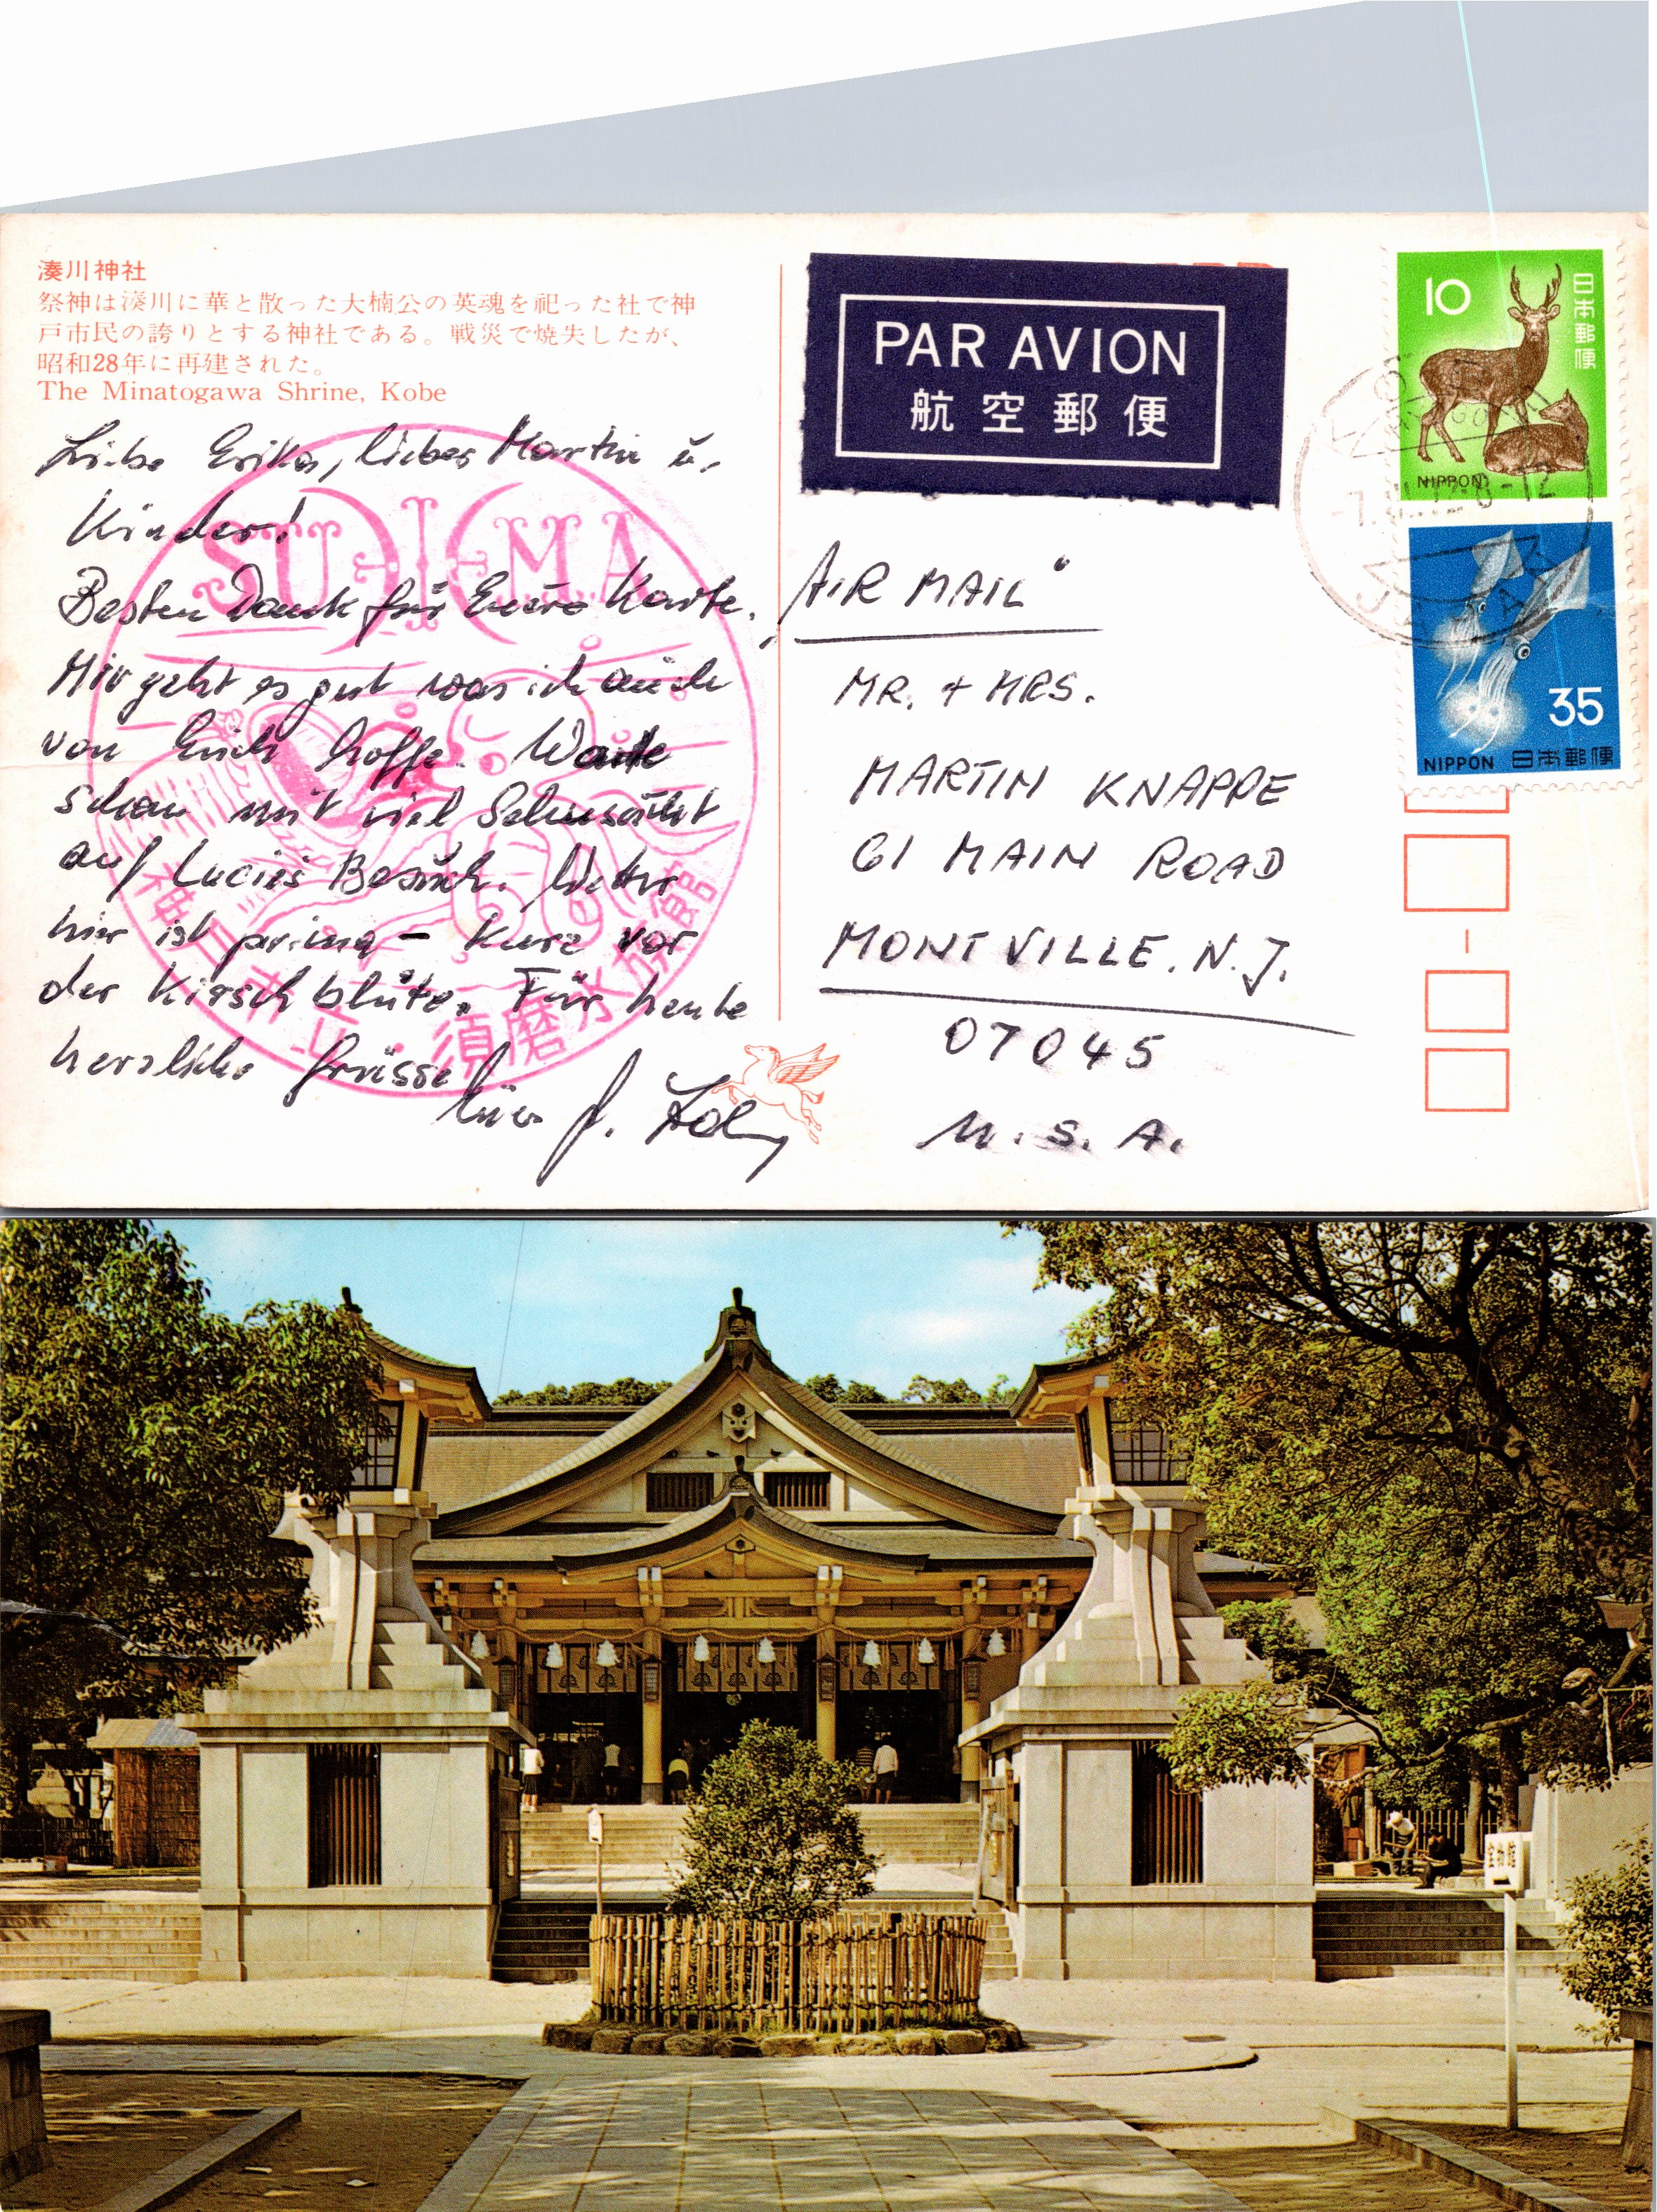 湊川神社
祭神は湊川に華と散った大楠公の英魂を祀った社で神
戸市民の誇りとする神社である。戦災で焼失したが、
昭和28年に再建された。
The Minatogawa Shrine, Kobe
Liebe Erika, lieber Martin u.
Kinder!
Besten Dank für Euere Karte.
Mir geht es gut was ich auch
von Euch hoffe. Warte
schon mit viel Sehnsucht
auf Lucies Besuch. Wetter
hier ist prima - kurz vor
der Kirschblüte. Für heute
herzliche Grüsse
Euer J.
SUMA
神戸市立・須磨水族館
PAR AVION
航空郵便
AIR MAIL
MR. + MRS.
MARTIN KNAPPE
61 MAIN ROAD
MONTVILLE. N.J.
07045
U.S.A.
10
日本郵便
NIPPON
35
NIPPON 日本郵便
8-12
JAPAN
宝物館